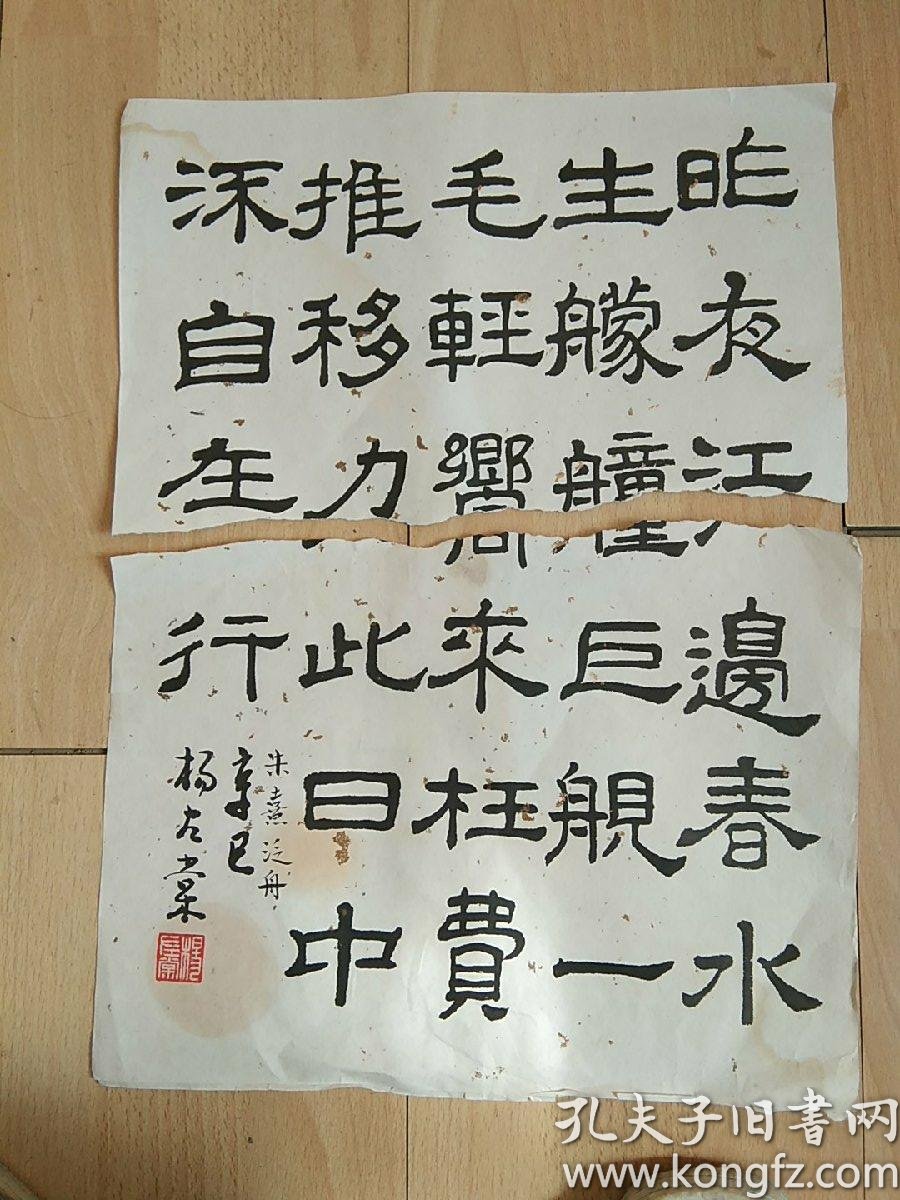 昨夜江邊春水
生艨艟巨舰一
毛輕嚮來枉費
推移力此日中
流自在行
朱熹 泛舟
辛巳
杨棠
孔夫子旧书网
www.kongfz.com